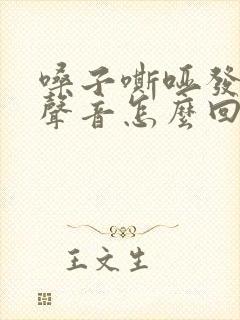 嗓子嘶啞發
聲音怎麼回
王文生